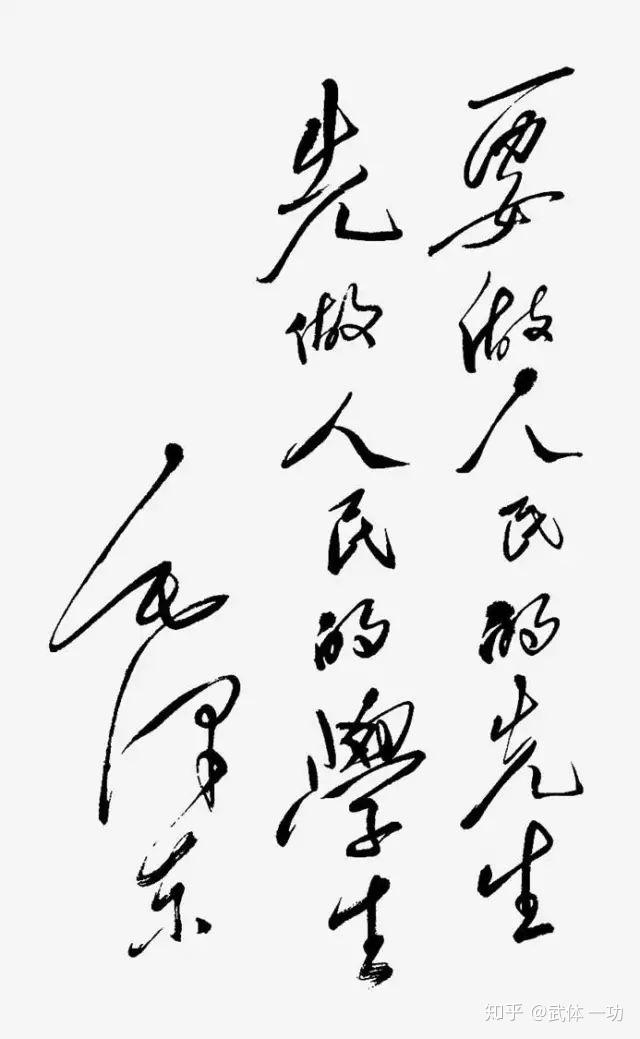 要做人民的先生
先做人民的學生
毛泽东
知乎 @武体一功